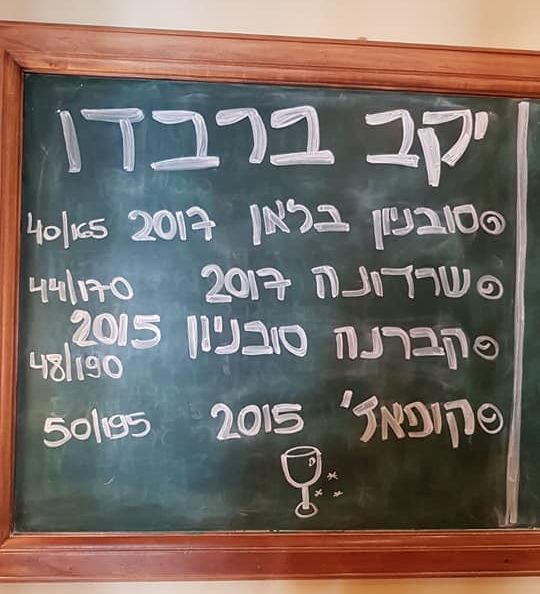 יקב ברבדו
סובניון בלאן 2017 40/165
שרדונה 2017 44/170
קברנה סובניון 2015
48/190
קופאז' 2015 50/195